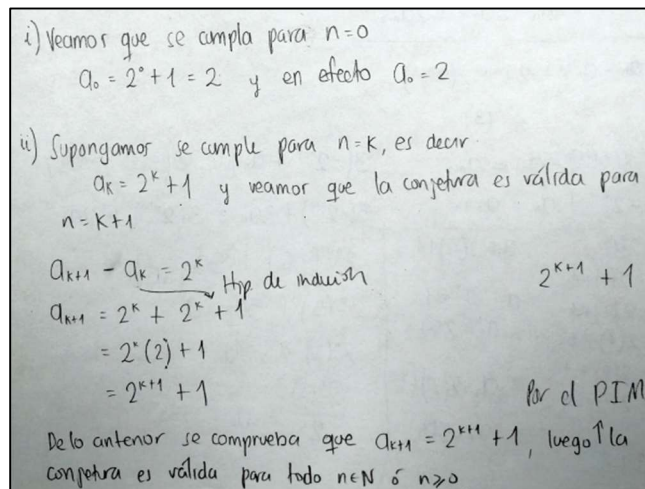 i) Veamos que se cumpla para n=0
a₀ = 2⁰ + 1 = 2 y en efecto a₀ = 2
ii) Supongamos se cumple para n=k, es decir
aₖ = 2ᵏ + 1 y veamos que la conjetura es válida para
n = k+1
aₖ₊₁ - aₖ = 2ᵏ
Hip de inducción
2ᵏ⁺¹ + 1
aₖ₊₁ = 2ᵏ + 2ᵏ + 1
= 2ᵏ(2) + 1
= 2ᵏ⁺¹ + 1
Por el PIM
De lo anterior se comprueba que aₖ₊₁ = 2ᵏ⁺¹ + 1, luego ↑ la
conjetura es válida para todo n∈N ó n≥0